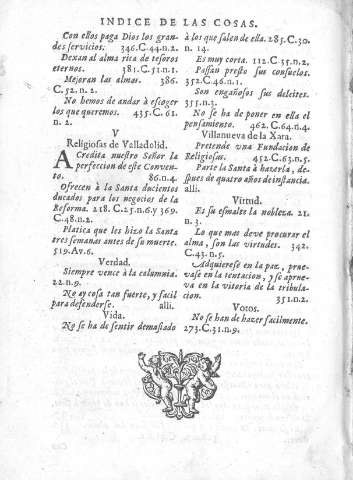 INDICE DE LAS COSAS.
Con ellos paga Dios los gran-
des servicios. 346.C.44.n.2.
Dexan al alma rica de tesoros
eternos. 381.C.51.n.1.
Mejoran las almas. 386.
C.52.n.2.
No hemos de andar à escoger
los que queremos. 435.C.61.
n.2.
V
Religiosas de Valladolid.
Acredita nuestro Señor la
perfeccion de este Conven-
to. 86.n.4.
Ofrecen à la Santa ducientos
ducados para los negocios de la
Reforma. 218.C.25.n.6.y 369.
C.48.n.2.
Platica que les hizo la Santa
tres semanas antes de su muerte.
519.Av.6.
Verdad.
Siempre vence à la calumnia.
22.n.9.
No ay cosa tan fuerte, y facil
para defenderse. alli.
Vida.
No se ha de sentir demasiado
à los que salen de ella. 285.C.30.
n.14.
Es muy corta. 112.C.35.n.2.
Passan presto sus consuelos.
355.C.46.n.2.
Son engañosos sus deleites.
355.n.3.
No se ha de poner en ella el
pensamiento. 462.C.64.n.4.
Villanueva de la Xara.
Pretende vna Fundacion de
Religiosas. 452.C.63.n.5.
Parte la Santa à hazerla, des-
pues de quatro años de instancia.
alli.
Virtud.
Es su esmalte la nobleza. 21.
n.3.
Lo que mas deve procurar el
alma, son las virtudes. 342.
C.43.n.5.
Adquierese en la paz, prue-
vase en la tentacion, y se aprue-
va en la vitoria de la tribula-
cion. 351.n.2.
Votos.
No se han de hazer facilmente.
273.C.31.n.9.